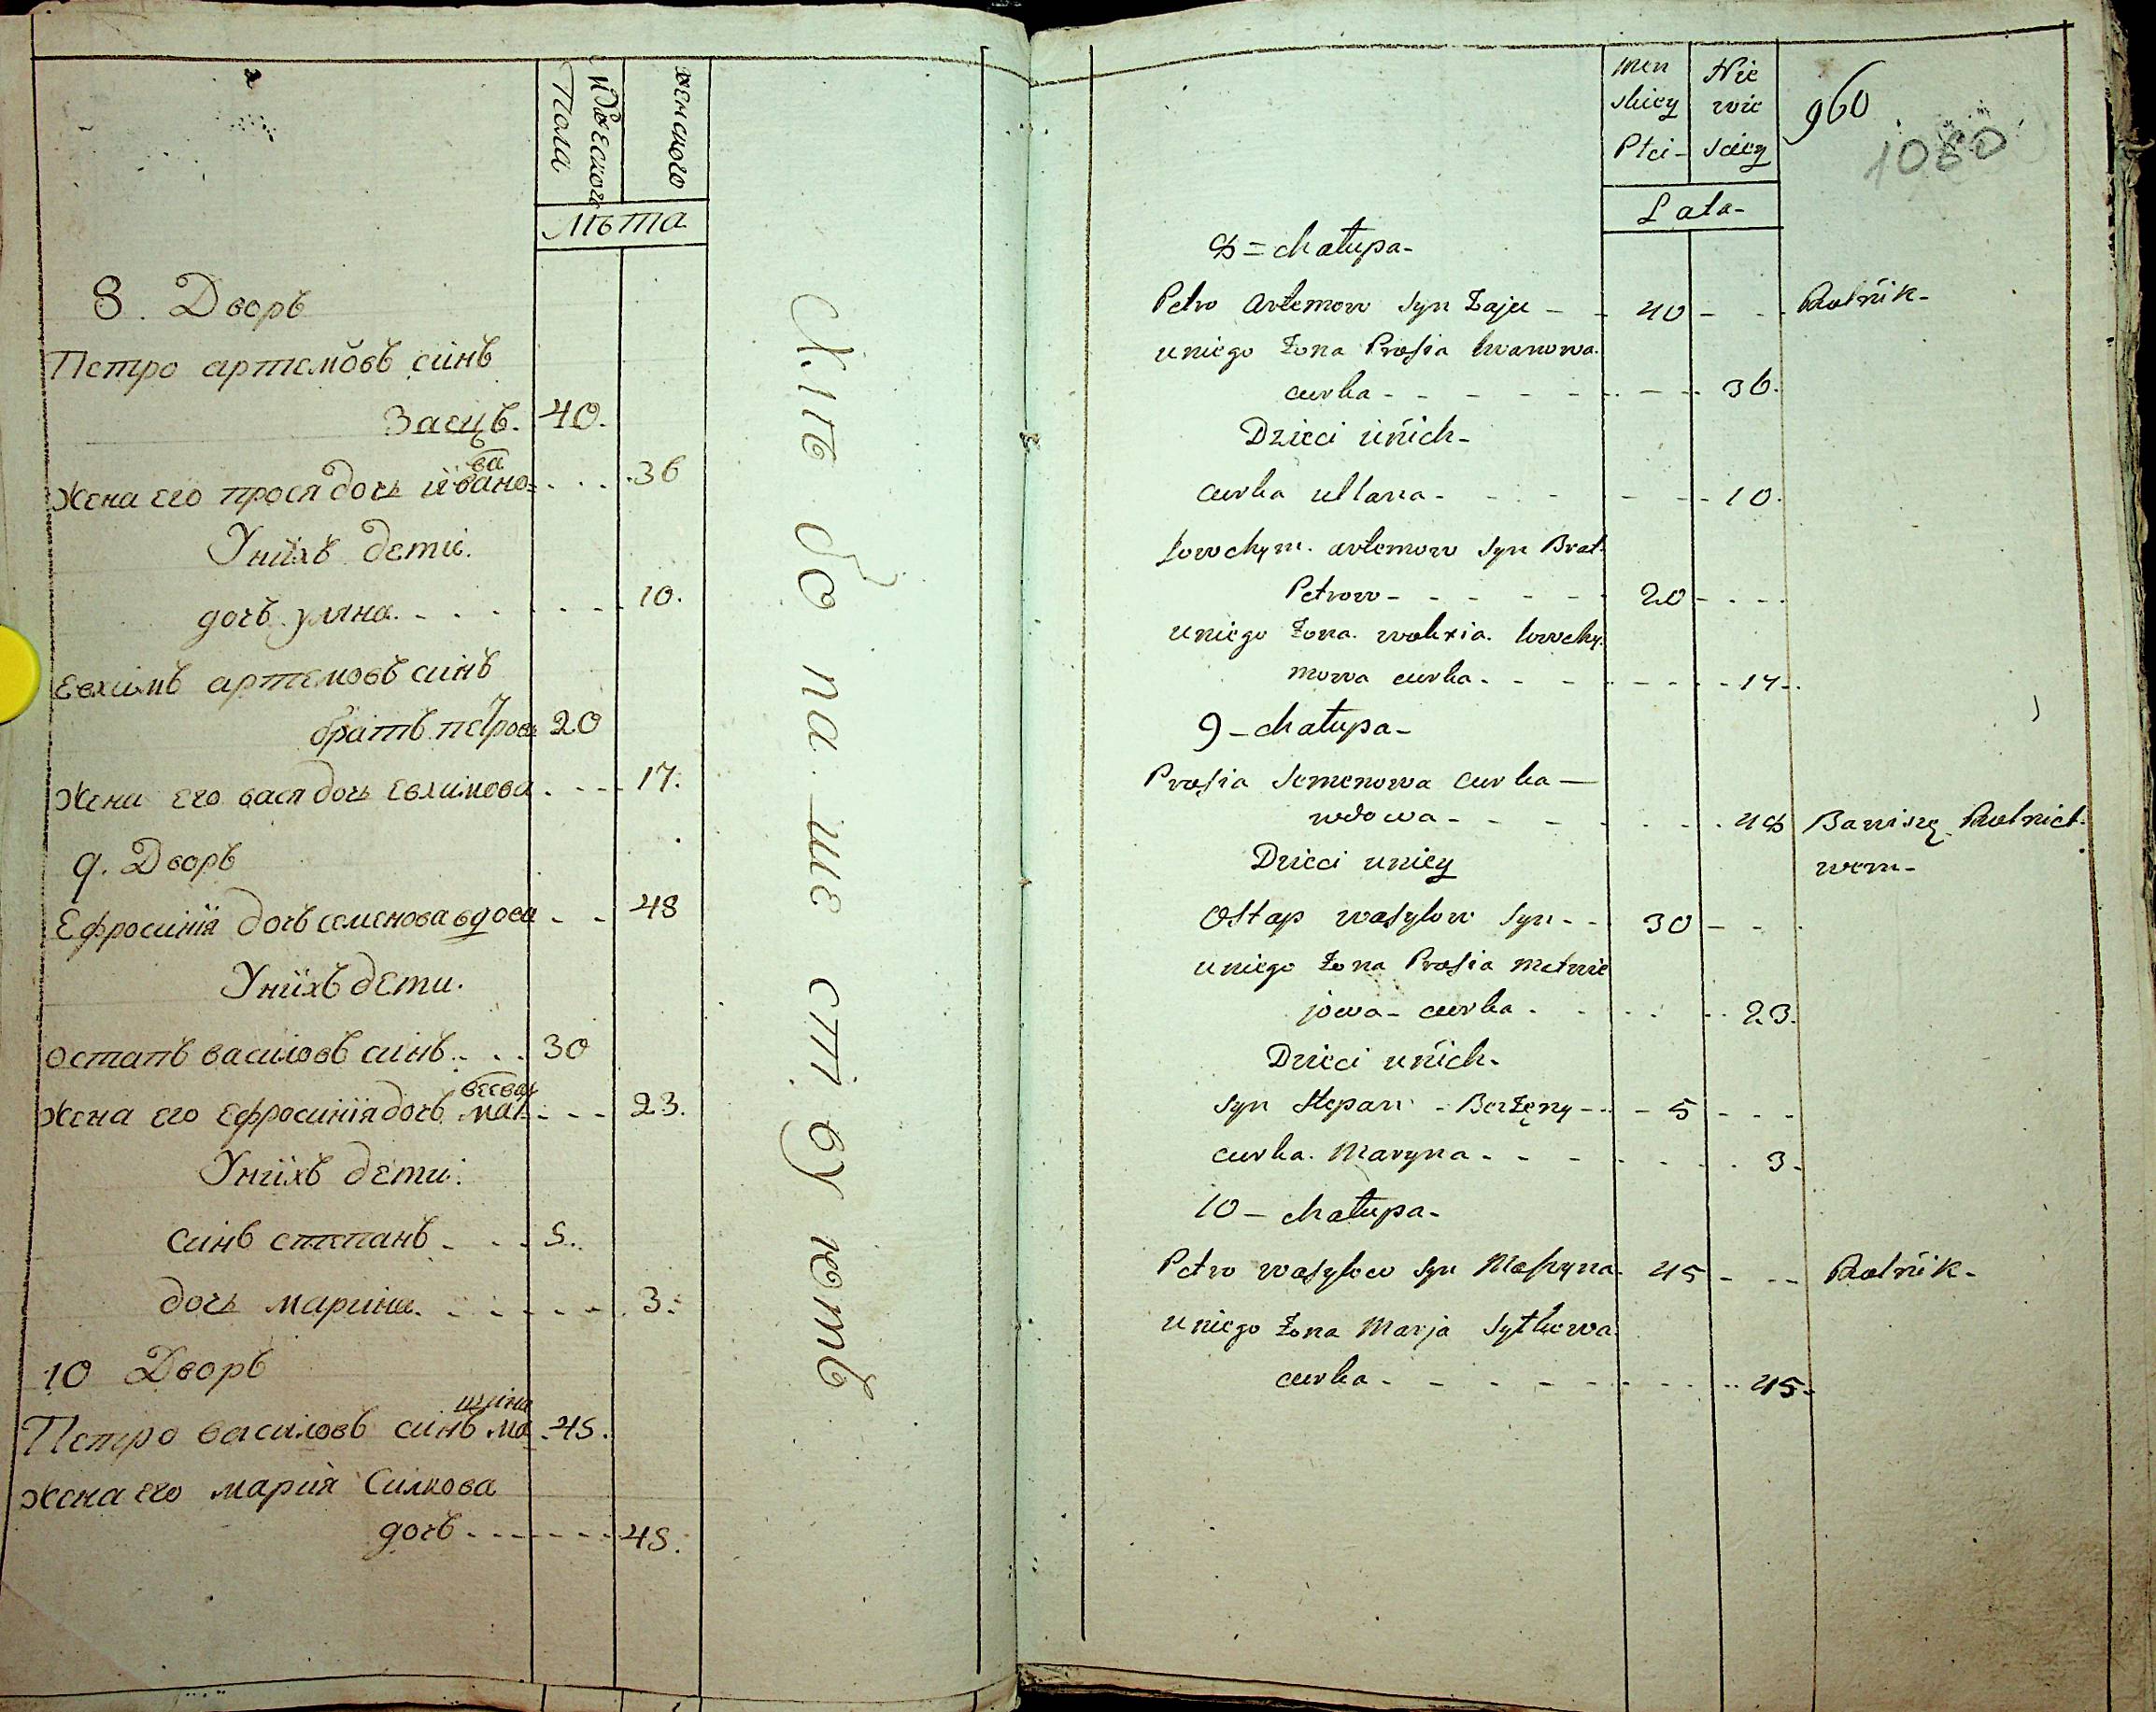 Пола
мужескогѡ
женского
Лѣта
8. Дворъ
Петро артемовъ синъ
Заецъ. 40.
жена его прося дочь ивано= 36
ва
Унихъ дети.
дочъ уляна. 10.
Евхимъ артемовъ синъ
братъ петровъ 20
жена его вася дочь евхимова 17.
9. Дворъ
Ефросинія дочъ семенова вдова 48
Унихъ дети.
остапъ василовъ синъ. 30
жена его ефросинія дочъ мат 23.
веева
Унихъ дети:
синъ степанъ 5.
дочь марина. 3.
10 Дворъ
Петро василовъ синъ ма 45.
шина
жена его марія Силкова
дочъ 45.
Men
skiey
Płci-
Nie
wie
sciey
960
1080
Lata-
8 = chałupa-
Petro Artemow Syn Zajac - - 40 - - Rolnik-
uniego Żona Prosia Iwanowa
curka - - 36.
Dzieci unich-
curka ullana - - 10.
Jowchym. artemow Syn Brat
Petrow - - 20 - - -
uniego Żona. Jowchy.
mowa curka - - 17-.
9 - chałupa-
Prosia Semenowa Curka —
wdowa - - 48 Bawi się Rolnict
wem-
Dzieci uniey
Ostap wasylow Syn - - 30 - -
uniego Żona Prosia Matwie
jowa- curka - - 23.
Dzieci unich-
Syn Stepan - - 5 - - -
curka. Maryna - - 3-
10 - chałupa-
Petro wasylow Syn Maszyna 45 - - Rolnik-
uniego Żona Marja Sytkowa
curka - - 45-